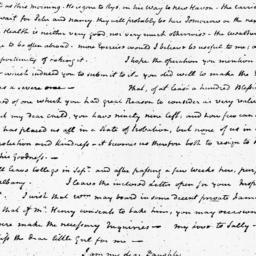 as this morning. He is gone to Rye, in his Way to New Haven. the Carri
wait for Peter and Nancy, they will probably be here Tomorrow on the ne
Health is neither very good, nor very much otherwise. the weathe
to be often abroad. more Exercise would I believe be useful to me; a
opportunity of taking it. I hope the Operation you mention
which induced you to submit to it. you did well to make the
as a severe one — That, of at least a hundred Bless
one of which you had great Reason to consider as very valua
but my dear child, you have ninety nine left; and how few can
has placed us all in a State of Probation, but none of us in
protection and kindness. it becomes us therefore both to resign to
his Goodness.
will leave College in Sepr. and after passing a few weeks here, pro
Albany. I leave the inclosed Letter open for your Insp
I wish that Wm. may board in some decent private Fami
that if Mr. Henry inclines to take him, you may occasion
make the necessary Inquiries — my Love to Sally
Kiss the Dear little Girl for me —
I am my dear Daughter